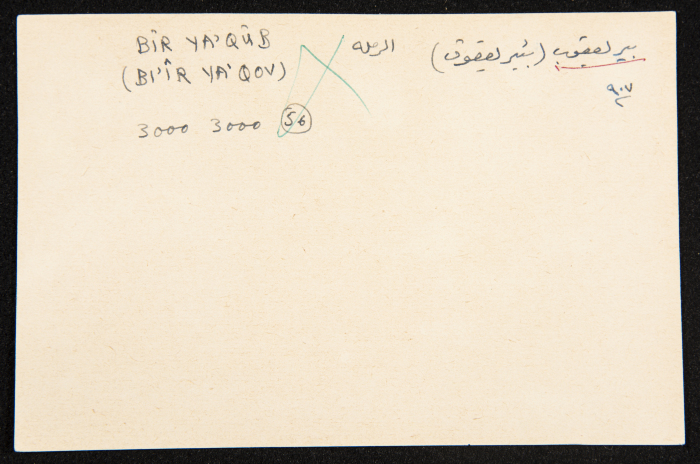 بير يعقوب (بئير يعقوق) الرمله
٩٠٧
BÎR YA'QÛB
(BI'ÎR YA'QOV)
3000 3000 56